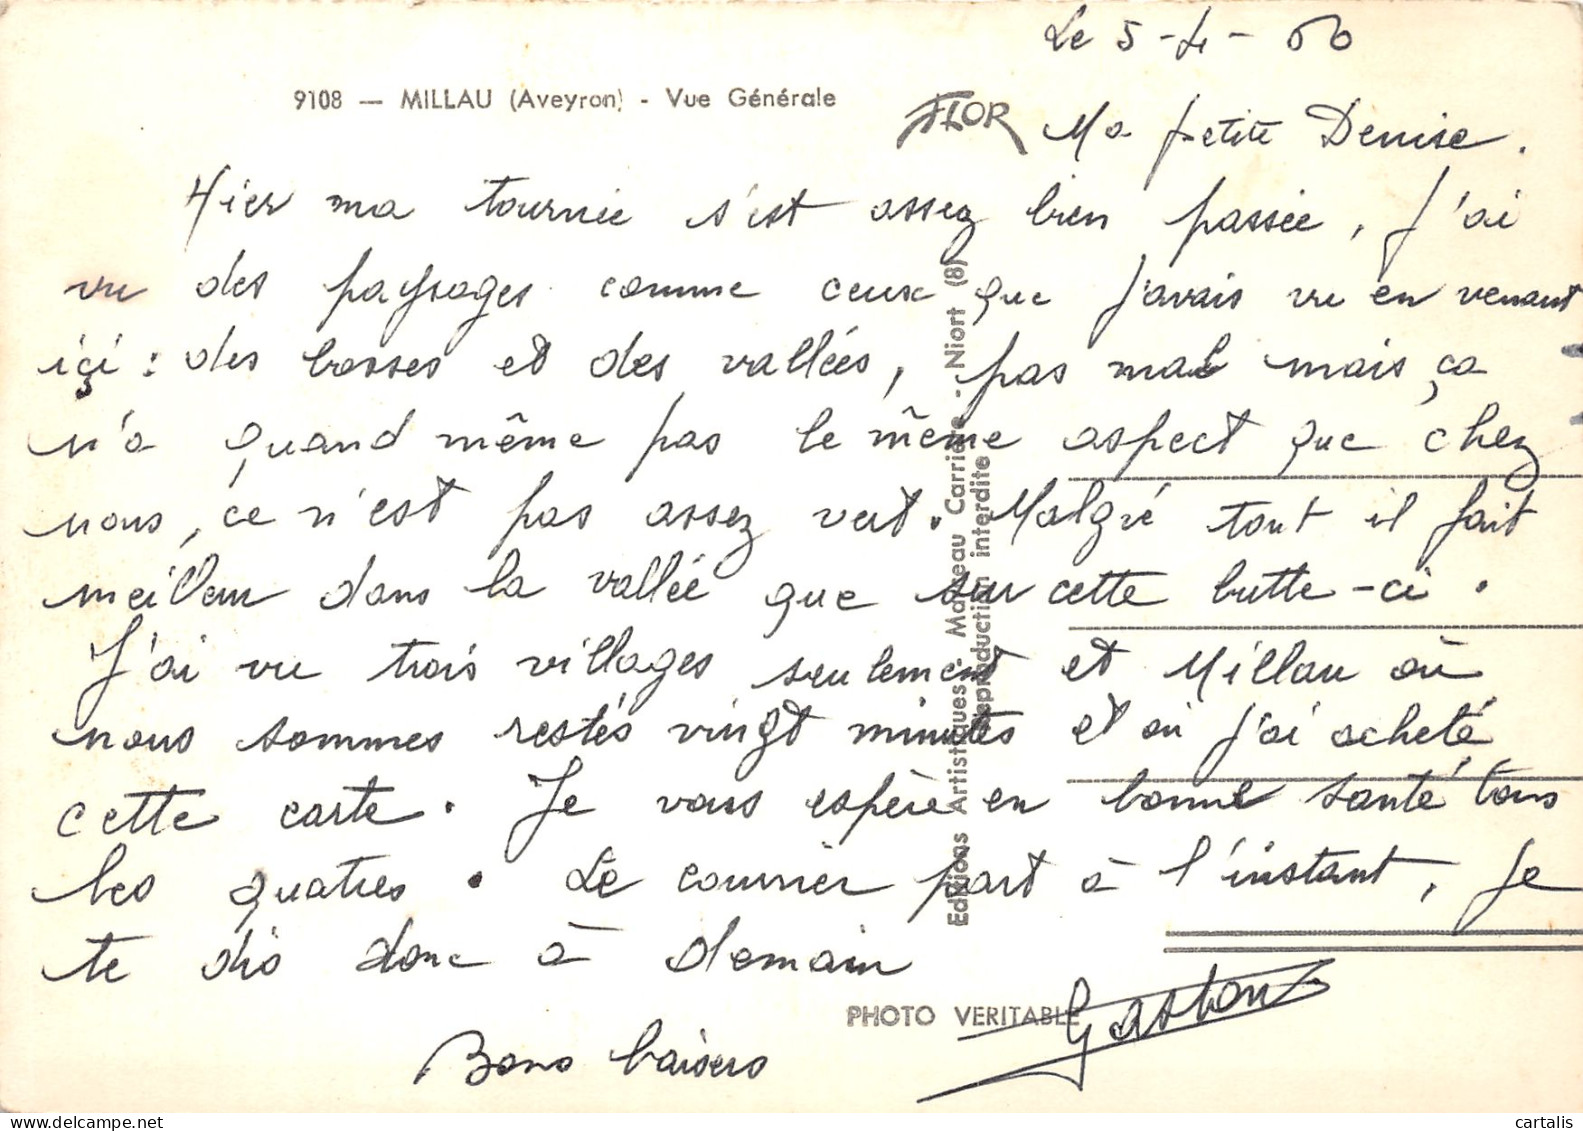 Le 5-4-66
9108 — MILLAU (Aveyron) - Vue Générale
FLOR
Ma petite Denise.
Hier ma tournée s'est assez bien passée, J'ai
vu des paysages comme ceux que j'avais vu en venant
içi : des bosses et des vallées, pas mal mais ça
n'a quand même pas le même aspect que chez
nous, ce n'est pas assez vert. Malgré tout il fait
meilleur dans la vallée que sur cette butte-ci.
J'ai vu trois villages seulement et Millau où
nous sommes restés vingt minutes et où j'ai acheté
cette carte. Je vous espère en bonne santé tous
les quatres. Le courrier part à l'instant, je
te dis donc à demain
Gaston
Bons baisers
PHOTO VERITABLE
Editions Artistiques - Marceau Carrière - Niort (8)
Reproduction interdite
cartalis
delcampe.net